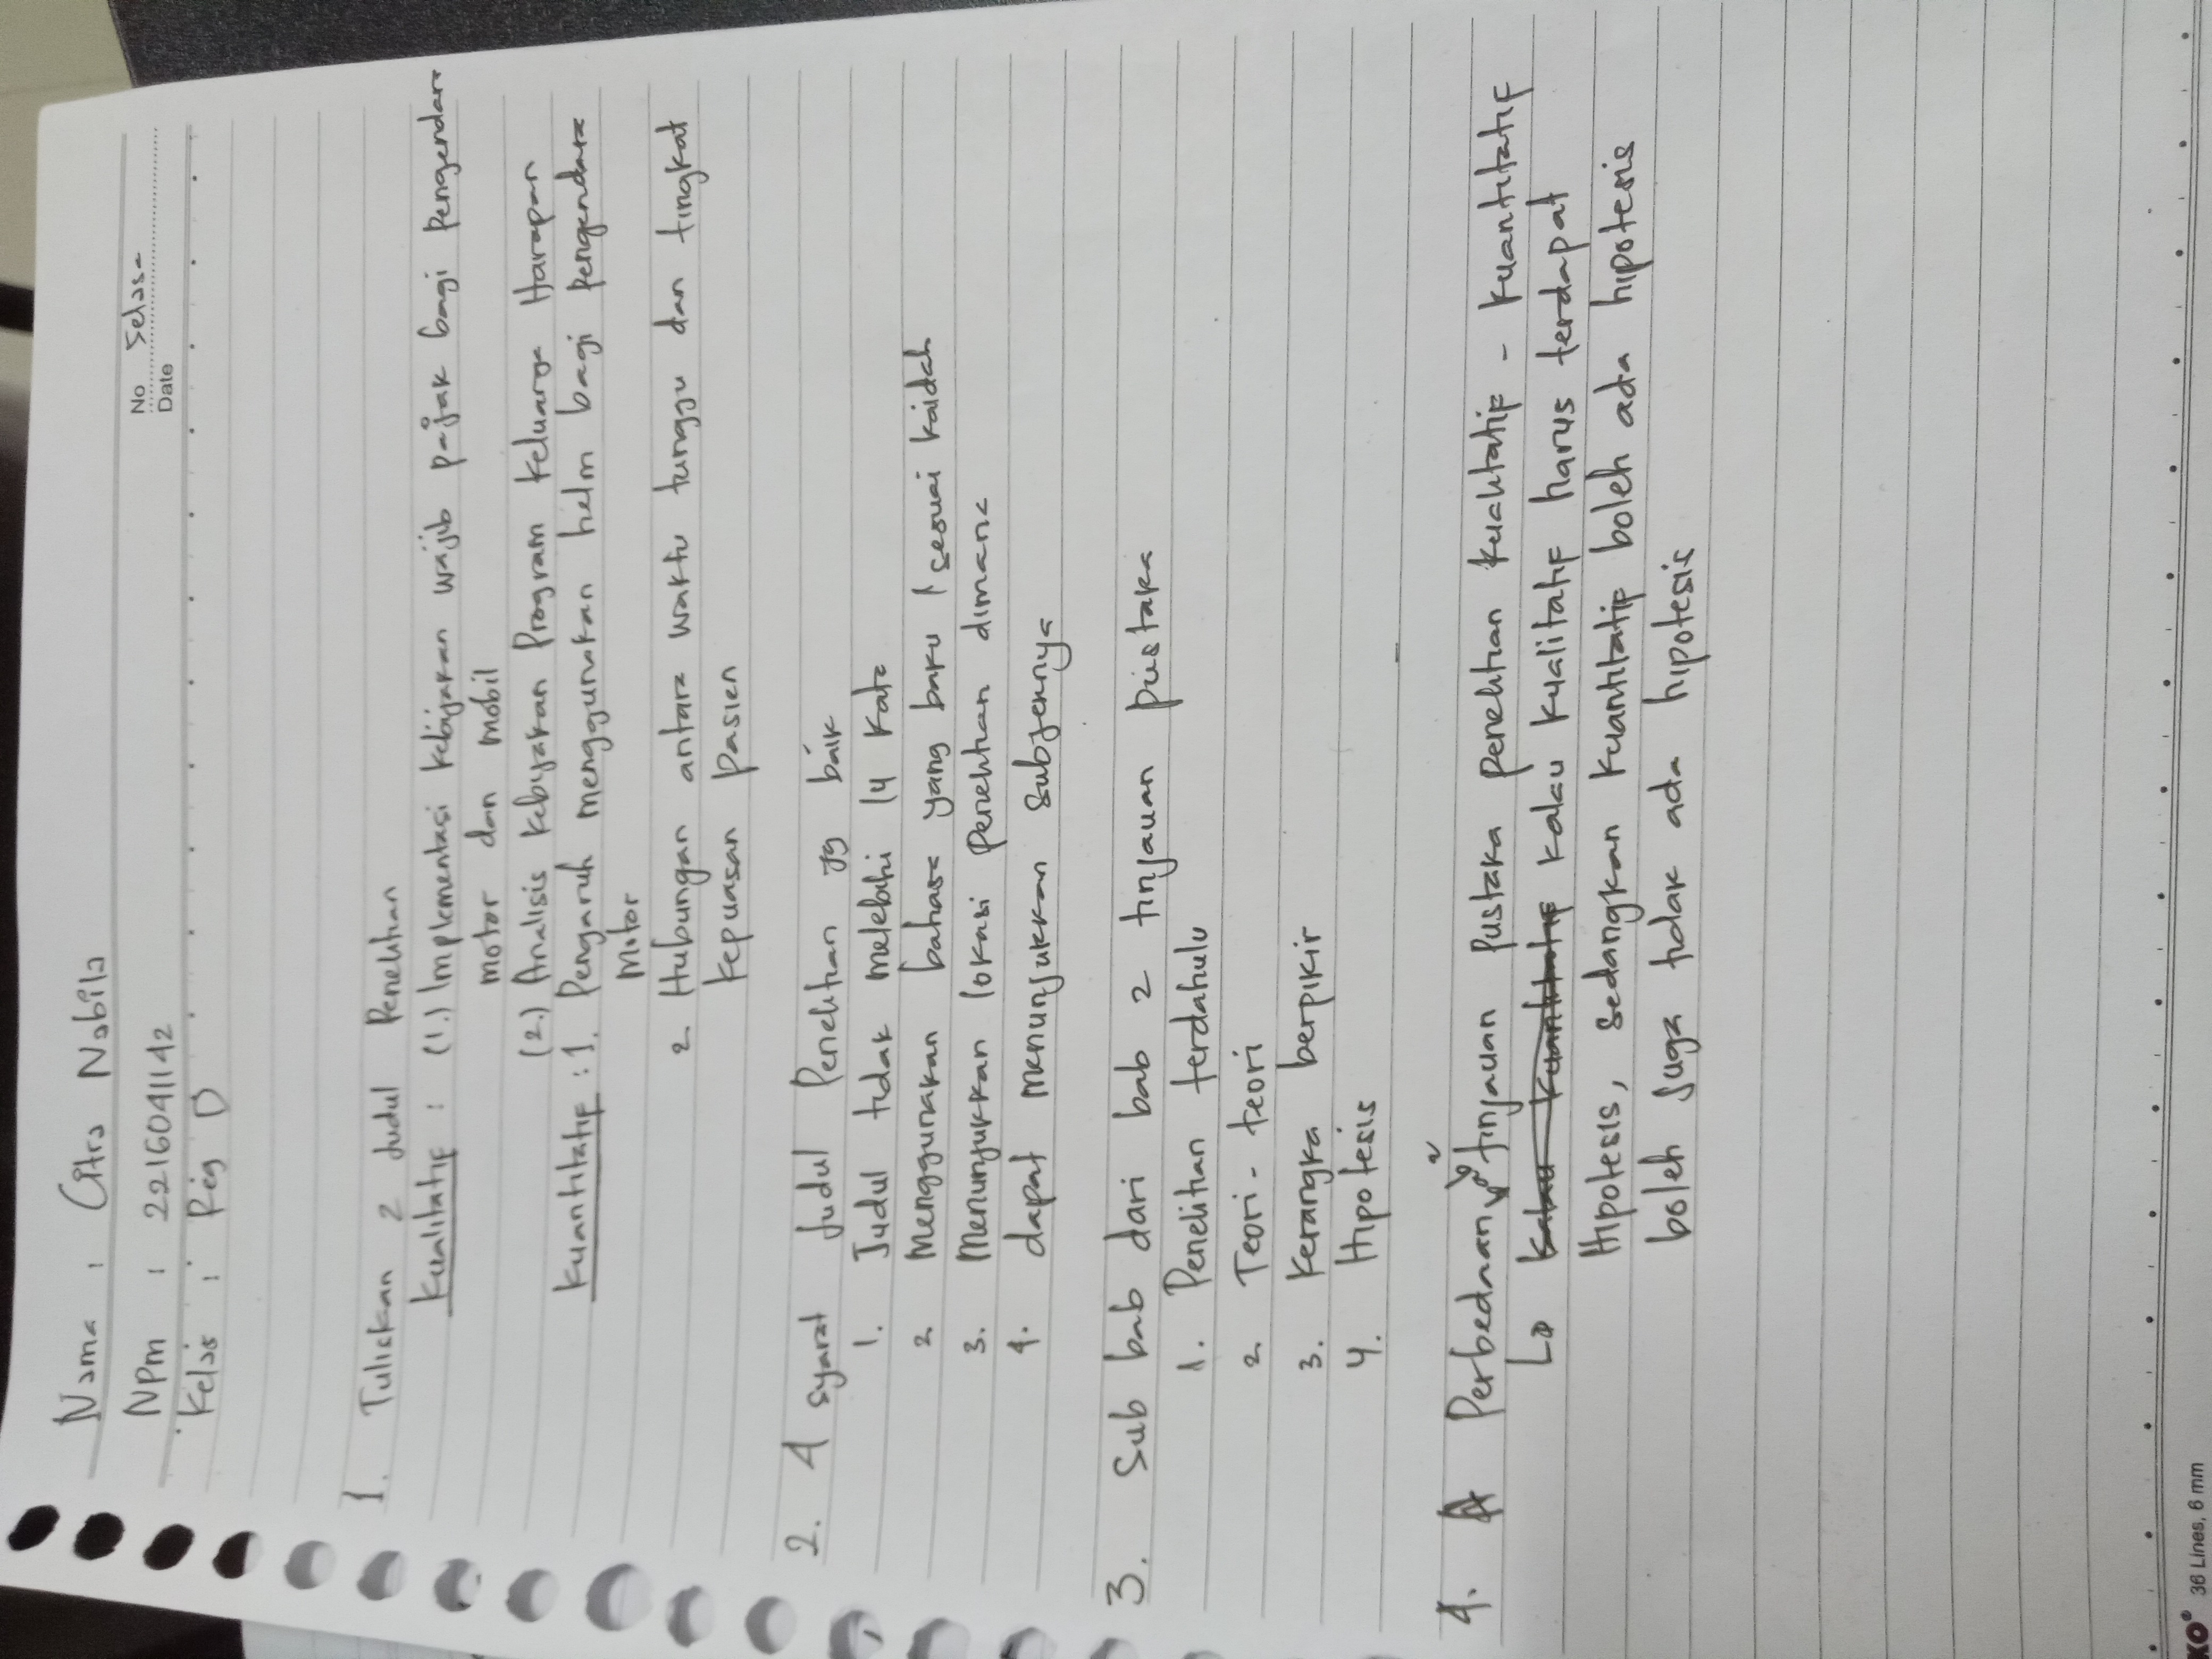 No Selasa
Date
Nama : Citra Nabila
NPM : 2216041142
Kelas : Reg D
1. Tuliskan 2 Judul Penelitian
Kualitatif : (1.) Implementasi kebijakan wajib pajak bagi pengendara
motor dan mobil
(2.) Analisis kebijakan Program Keluarga Harapan
Kuantitatif : 1. Pengaruh menggunakan helm bagi pengendara
Motor
2. Hubungan antara waktu tunggu dan tingkat
kepuasan pasien
2. 4 syarat Judul Penelitian yg baik
1. Judul tidak melebihi 14 kata
2. Menggunakan bahasa yang baku / sesuai kaidah
3. Menunjukkan lokasi Penelitian dimana
4. dapat menunjukkan Subjeknya
3. Sub bab dari bab 2 tinjauan pustaka
1. Penelitian terdahulu
2. Teori - teori
3. Kerangka berpikir
4. Hipotesis
4. Perbedaan tinjauan Pustaka penelitian kualitatif - kuantitatif
kalau kuantitatif kalau kualitatif harus terdapat
Hipotesis, sedangkan kuantitatif boleh ada hipotesis
boleh juga tidak ada hipotesis
KO 36 Lines, 6 mm